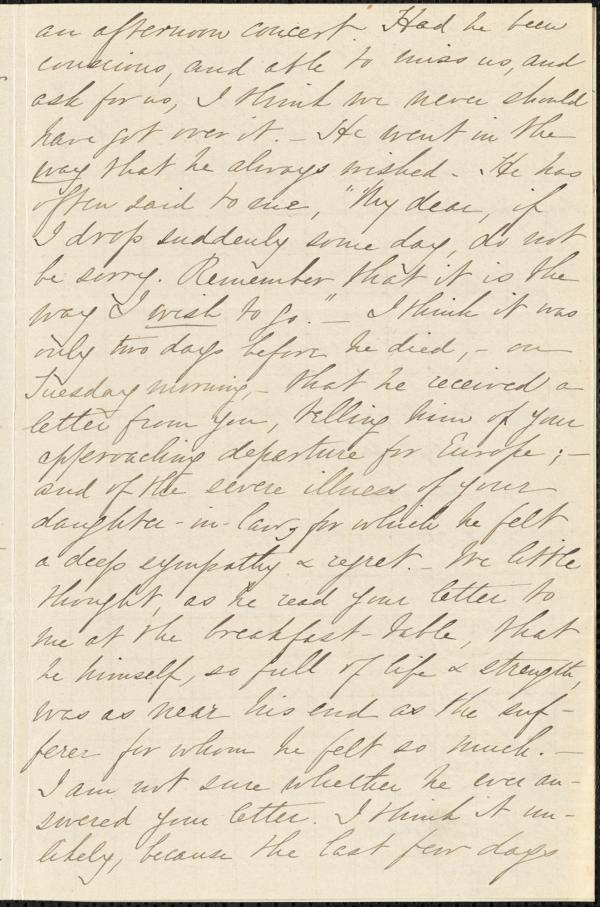 an afternoon concert. Had he been
conscious, and able to miss us, and
ask for us, I think we never should
have got over it. – He went in the
way that he always wished. – He has
often said to me, "My dear, if
I drop suddenly some day, do not
be sorry. Remember that it is the
way I wish to go." – I think it was
only two days before he died, – on
Tuesday morning, – that he received a
letter from you, telling him of your
approaching departure for Europe; –
and of the severe illness of your
daughter-in-law, for which he felt
a deep sympathy & regret. – We little
thought, as he read your letter to
me at the breakfast-table, that
he himself, so full of life & strength,
was as near his end as the suf-
ferer for whom he felt so much. –
I am not sure whether he ever an-
swered your letter. I think it un-
likely, because the last few days